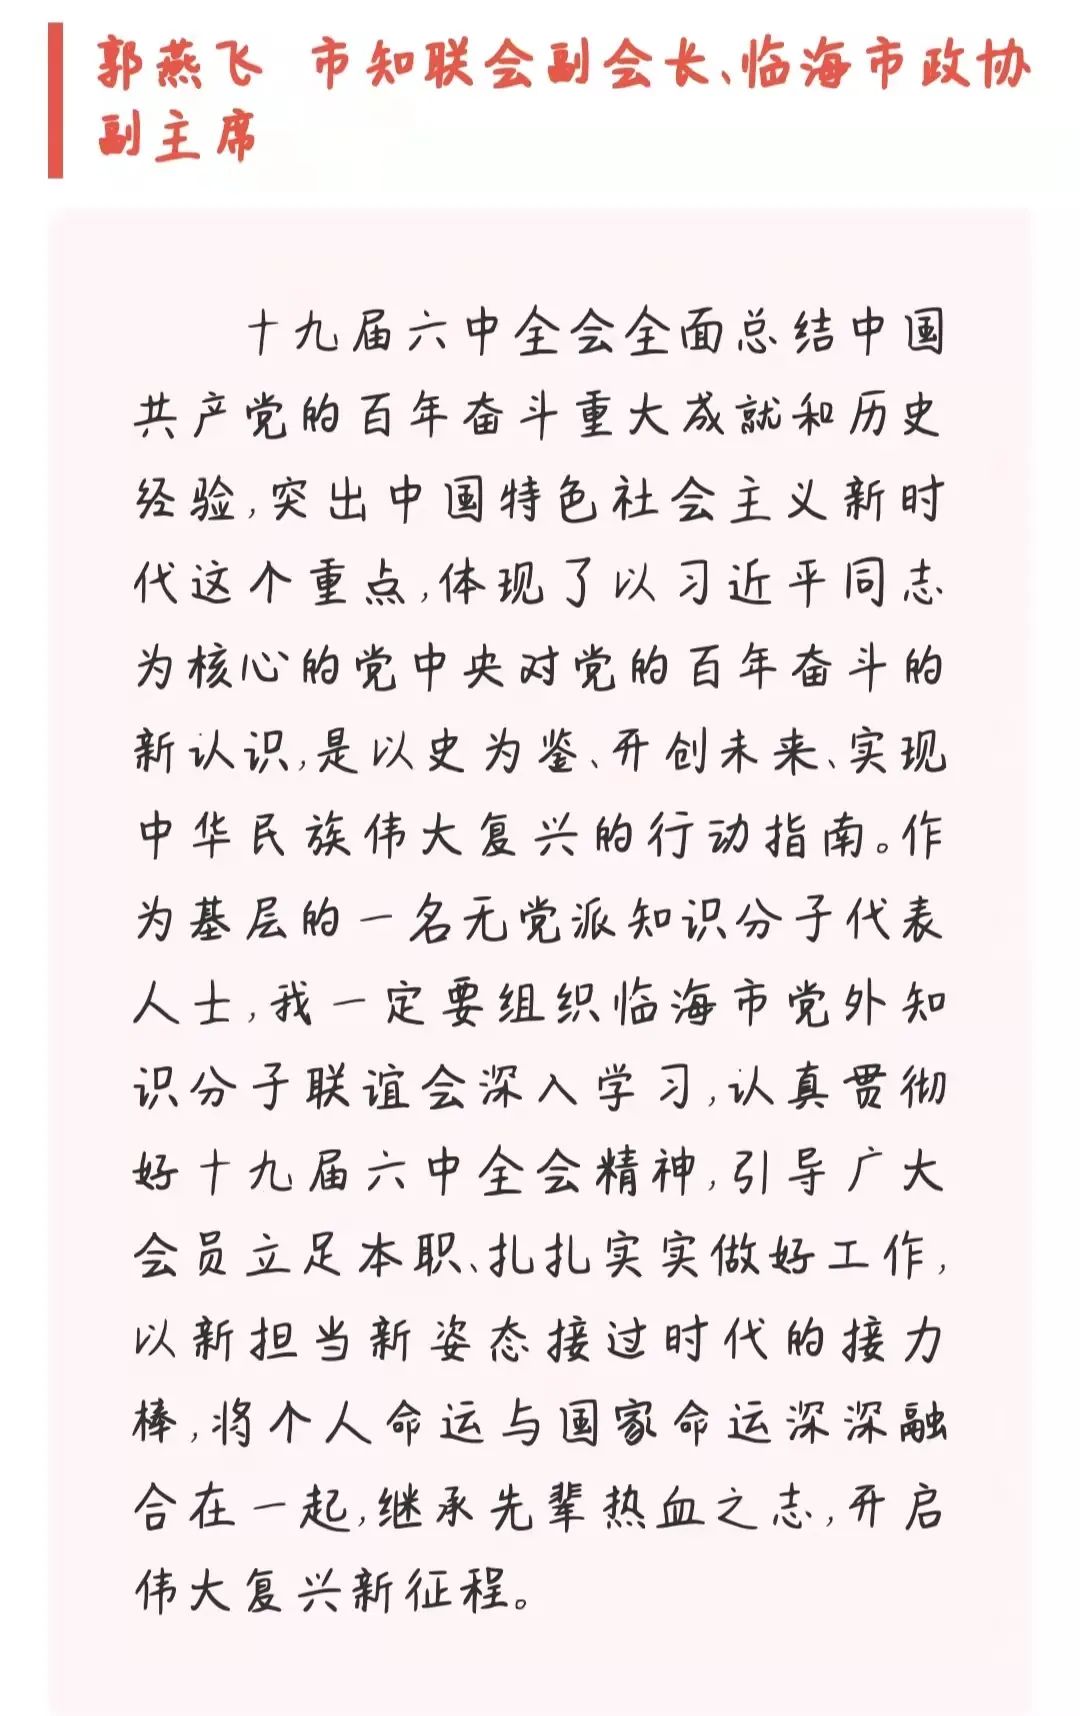 郭燕飞 市知联会副会长、临海市政协
副主席
十九届六中全会全面总结中国
共产党的百年奋斗重大成就和历史
经验,突出中国特色社会主义新时
代这个重点,体现了以习近平同志
为核心的党中央对党的百年奋斗的
新认识,是以史为鉴、开创未来、实现
中华民族伟大复兴的行动指南。作
为基层的一名无党派知识分子代表
人士,我一定要组织临海市党外知
识分子联谊会深入学习,认真贯彻
好十九届六中全会精神,引导广大
会员立足本职、扎扎实实做好工作,
以新担当新姿态接过时代的接力
棒,将个人命运与国家命运深深融
合在一起,继承先辈热血之志,开启
伟大复兴新征程。